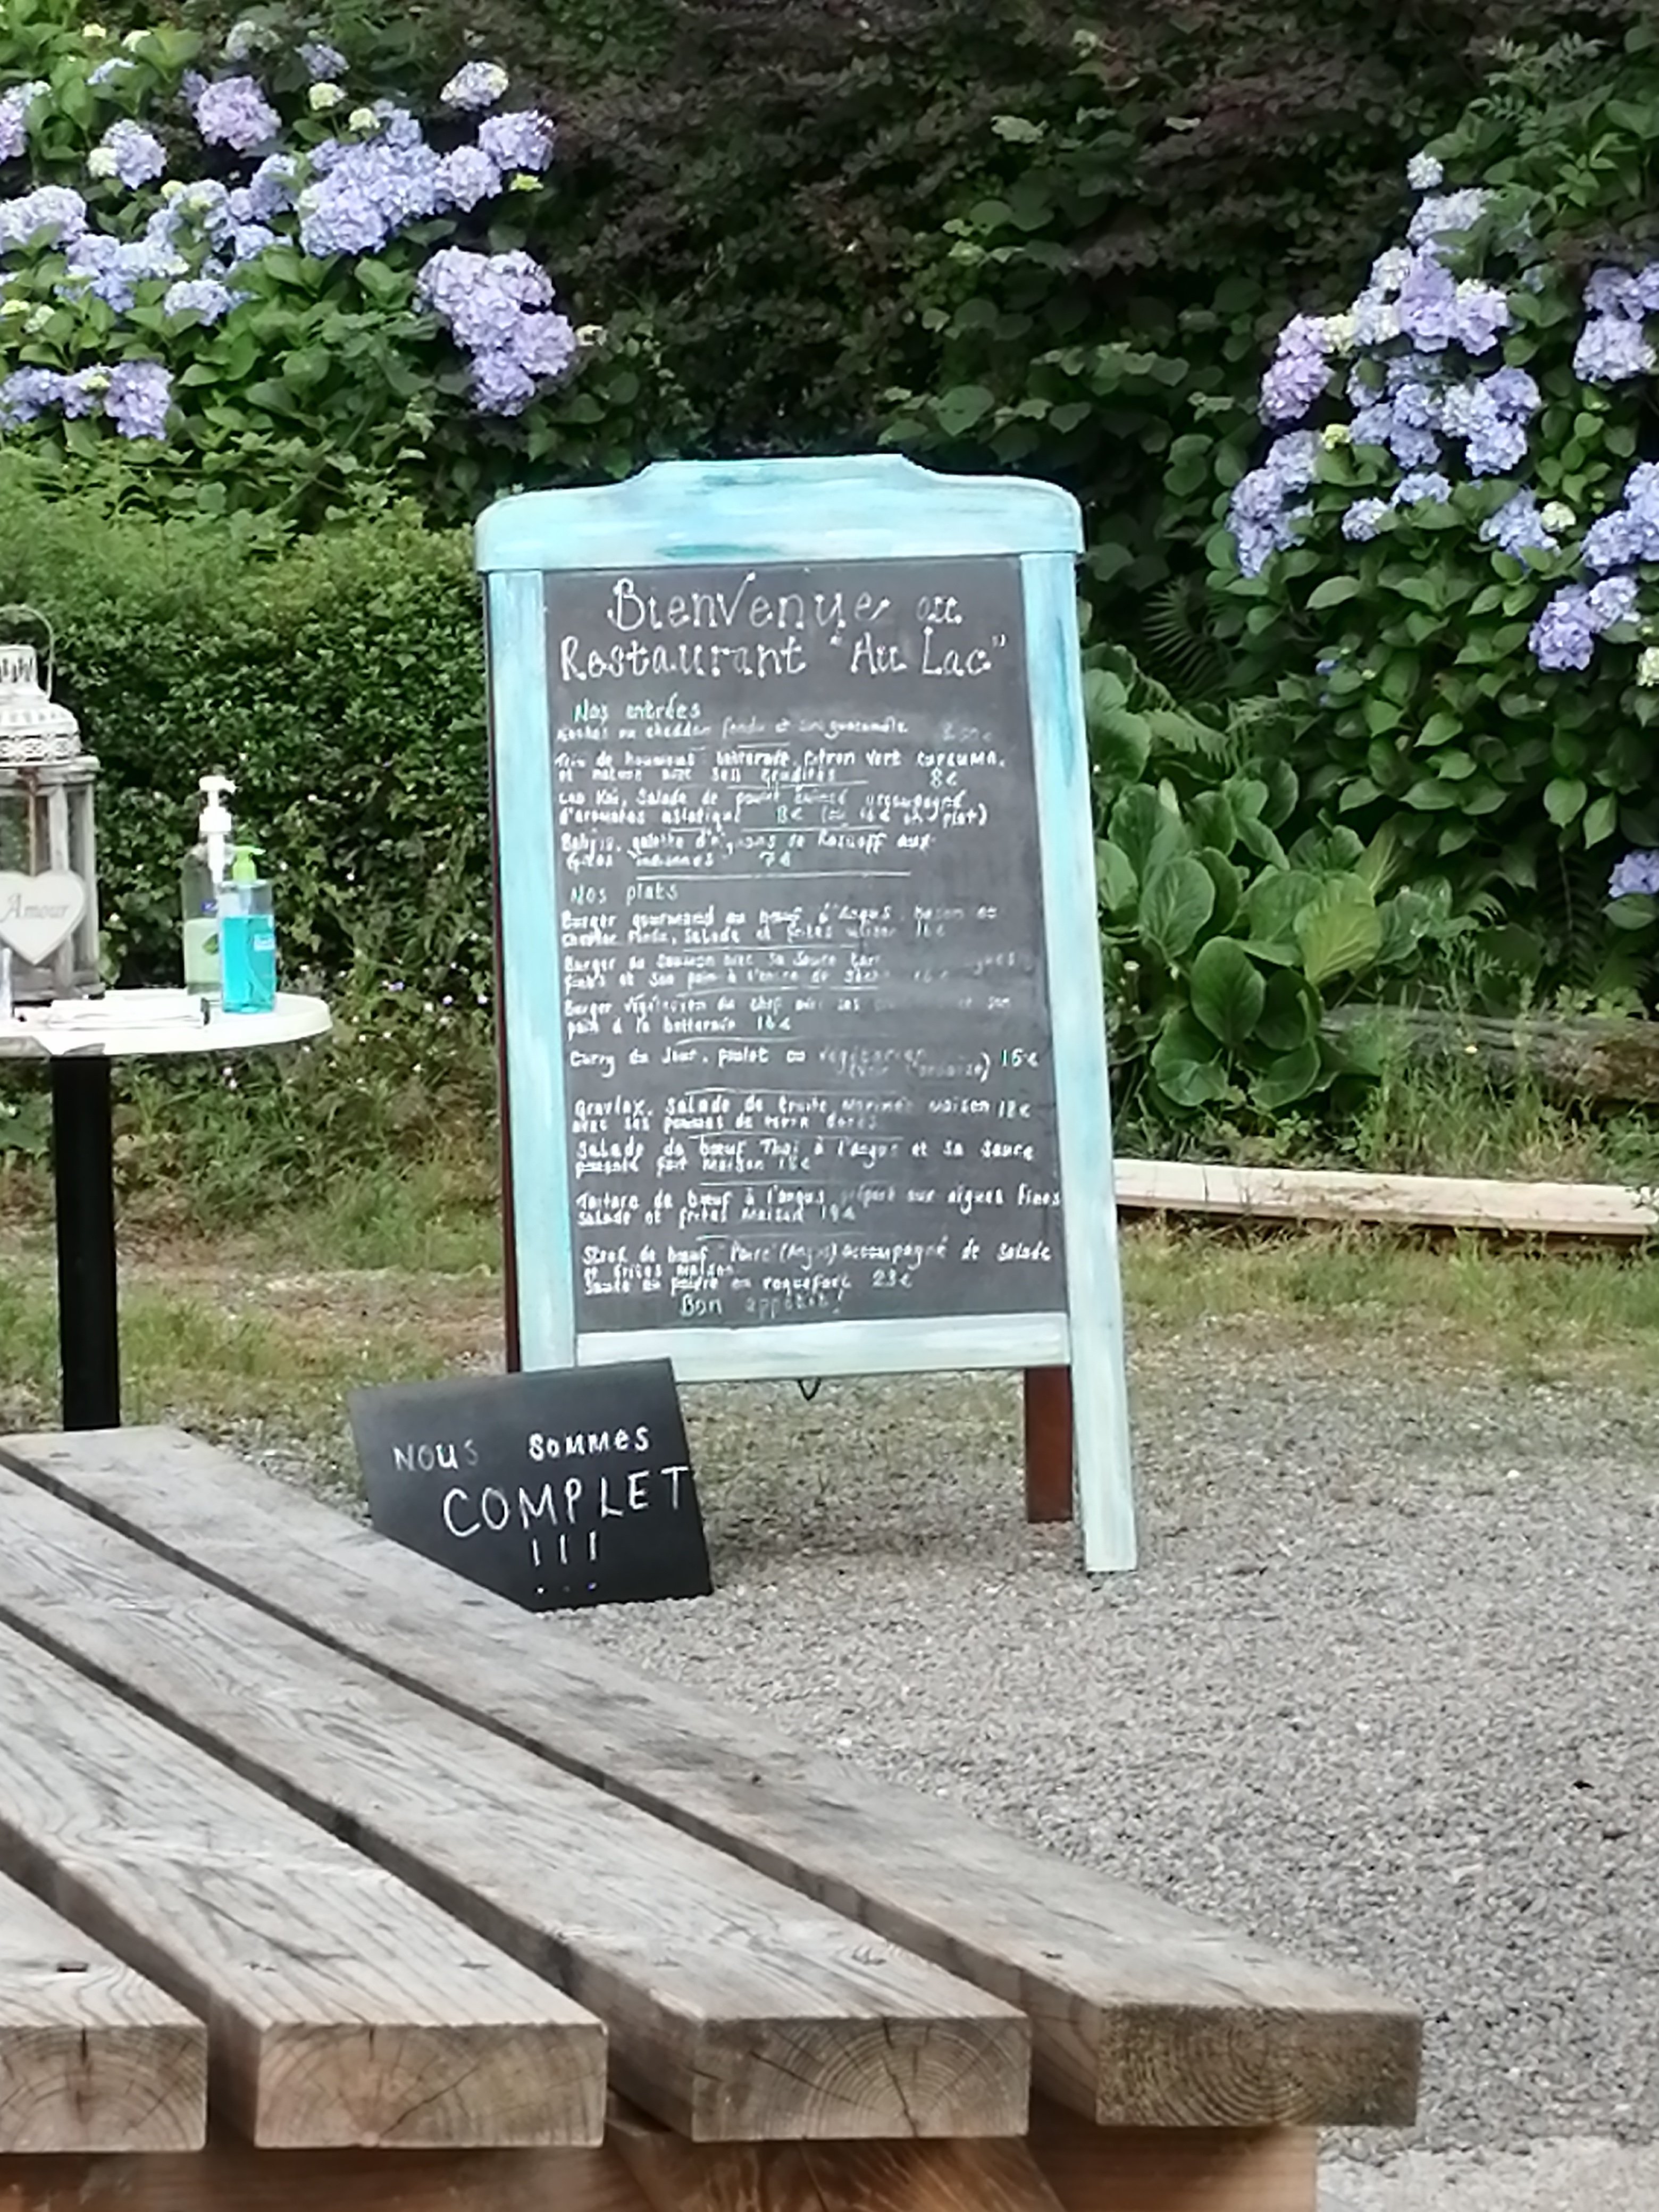 Amour
Bienvenue au
Restaurant "Au Lac"
Nos entrées
cheddar fondu et guacamole
Trio de houmous betterave, citron vert curcuma,
et nature avec ses crudités 8€
Salade de poulet accompagné
d'aromates asiatique 8€ (ou en plat)
galette d'oignons de Roscoff aux
indiennes 7€
Nos plats
Burger gourmand au bœuf d'Angus, bacon ou
cheddar fondu, salade et frites maison 16€
Burger de Saumon avec sa sauce
et son pain à l'encre de seiche
Burger végétarien du chef avec ses et son
pain à la betterave 16€
Curry du jour, poulet ou végétarien
15€
Gravlax, Salade de truite marinée maison 18€
avec ses pommes de terre
Salade de bœuf Thaï à l'angus et sa sauce
fait maison
Tartare de bœuf à l'angus préparé aux aigues fines
Salade et frites maison 19€
de bœuf (Angus) accompagné de salade
et frites maison
Sauce au poivre ou roquefort 23€
Bon appétit!
NOUS SOMMES
COMPLET
!!!